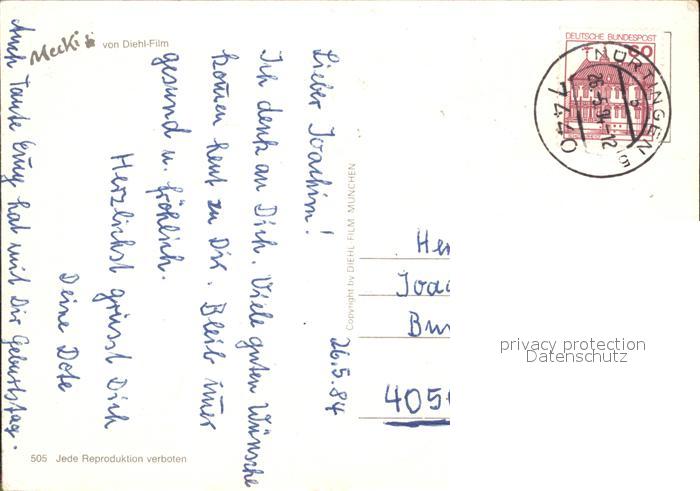 Mecki von Diehl-Film
26.5.84
Lieber Joachim!
Ich denk an Dich. Viele guten Wünsche
komen heut zu Dir. Bleib imer
gesund u. fröhlich.
Herzlichst grüsst Dich
Deine Dote
Auch Tante Emy hat mit Dir Geburtstag.
505 Jede Reproduktion verboten
Copyright by DIEHL FILM MÜNCHEN
DEUTSCHE BUNDESPOST
60
NÜRTINGEN 5
7440
Her
Joac
405
privacy protection
Datenschutz